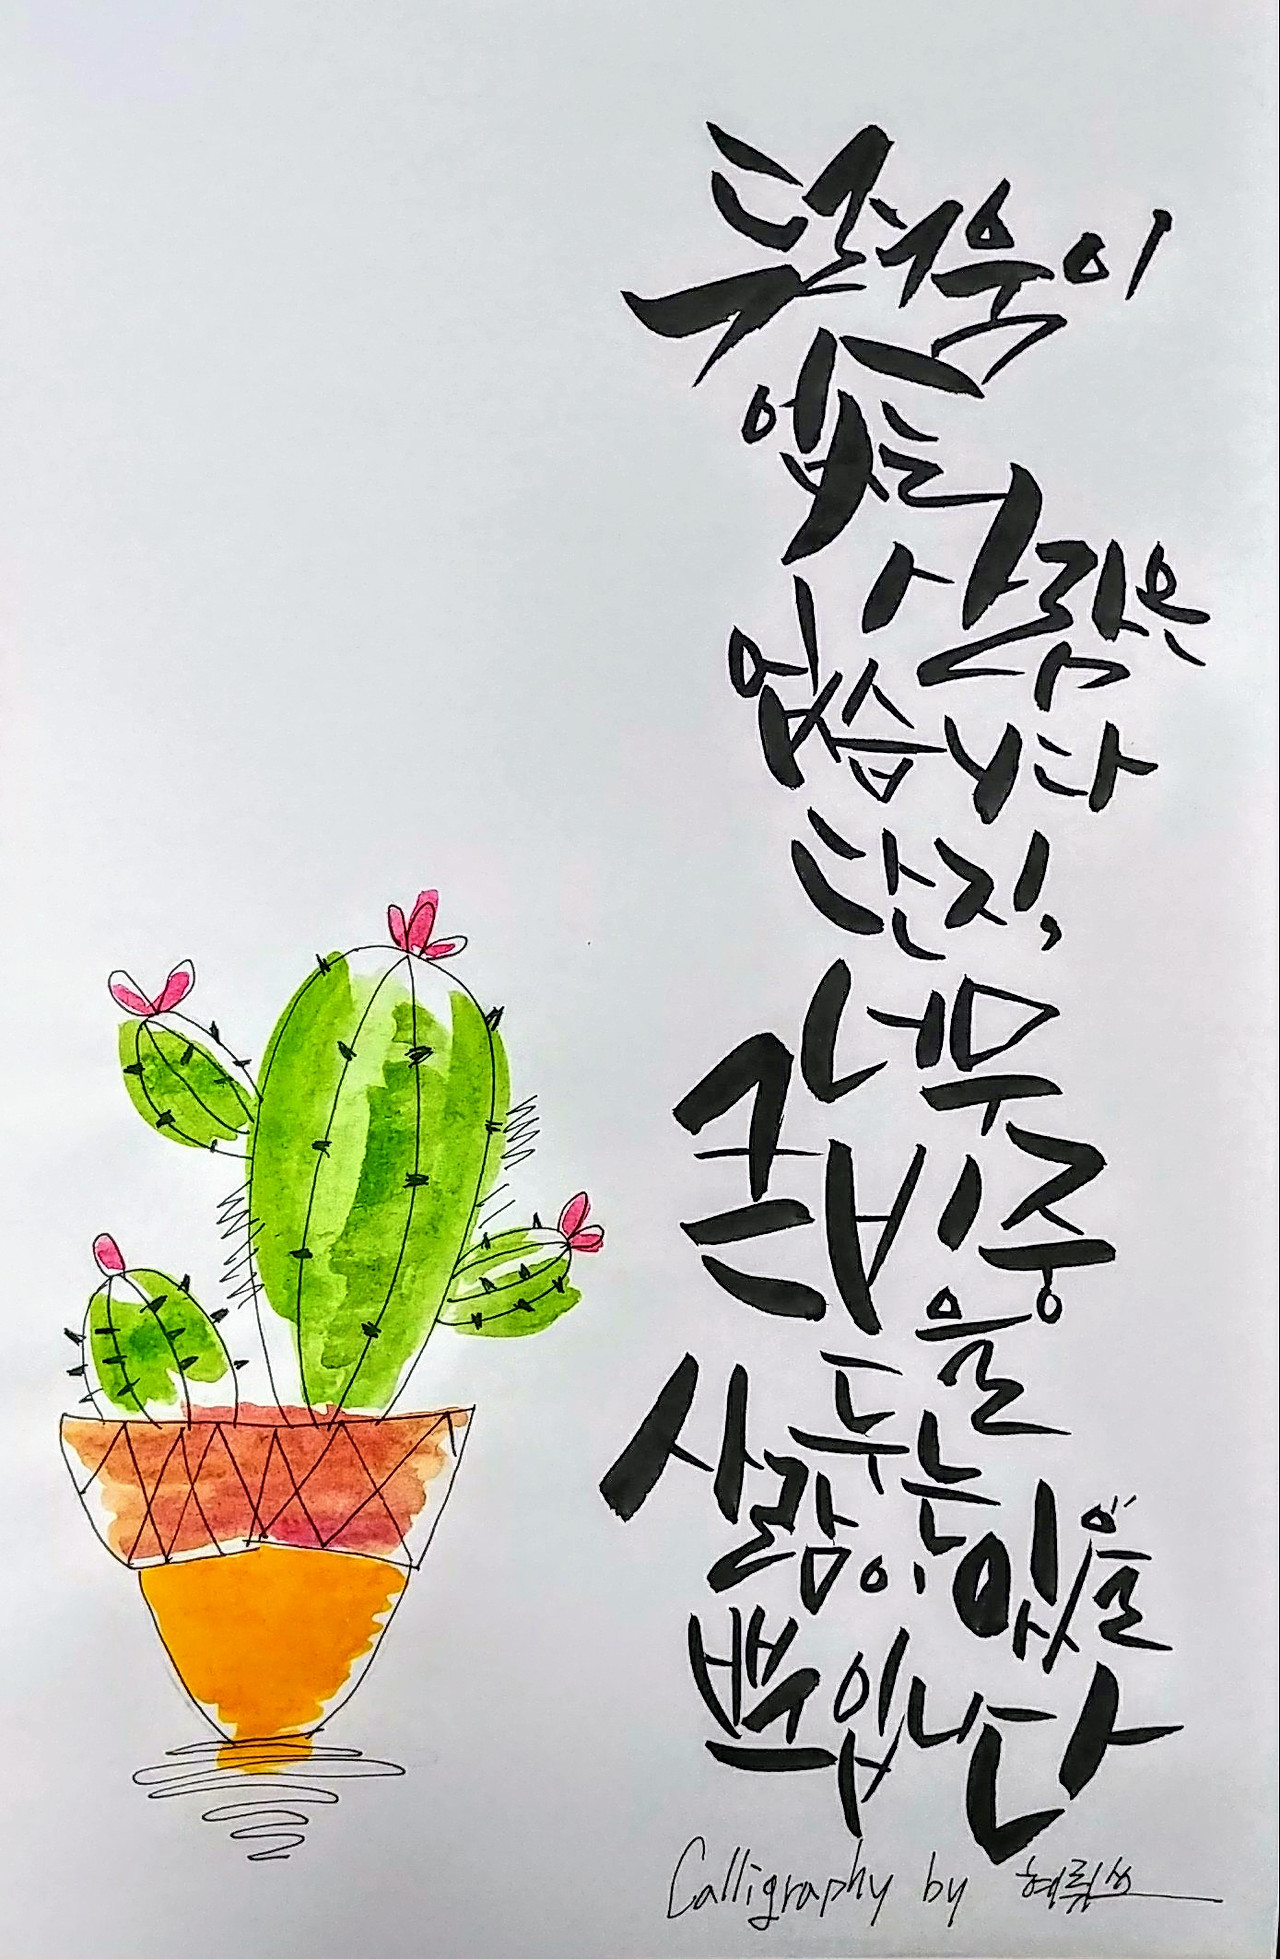 두려움이
없는
사람은
없습니다
단지,
너무
큰 비중을
두는
사람이 있을
뿐입니다
Calligraphy by